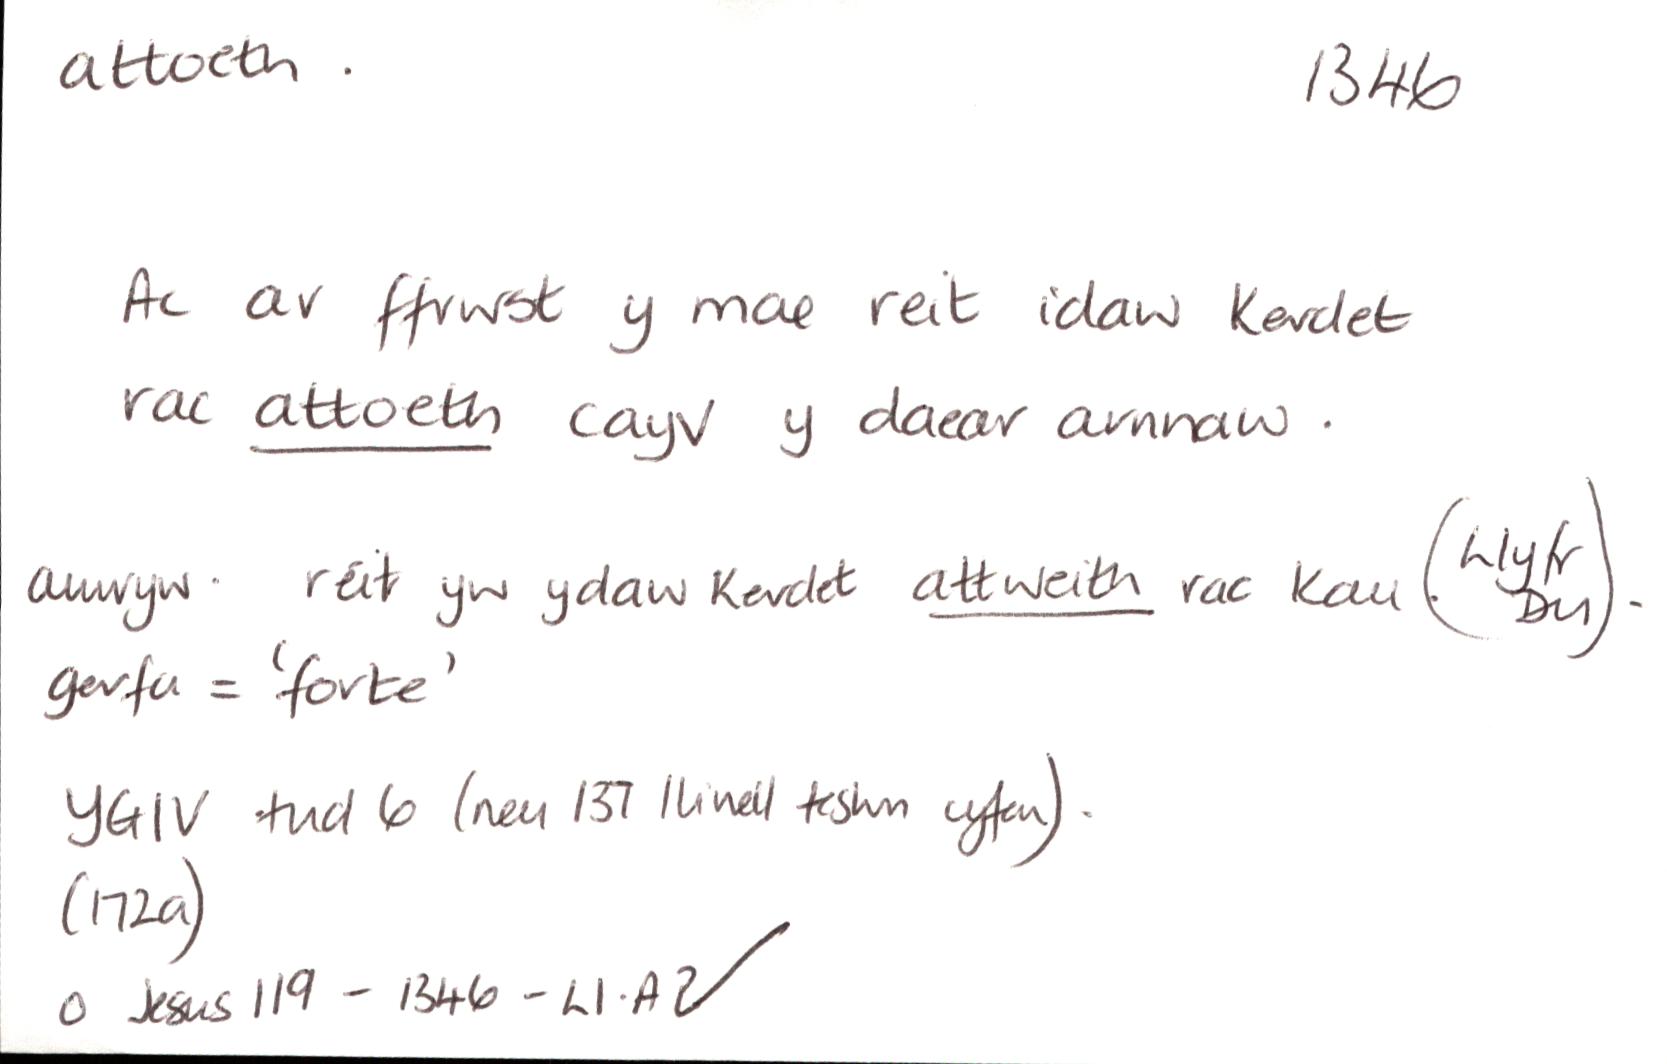 attoeth. 1346
Ac ar ffrwst y mae reit idaw kerdet
rac attoeth cayv y daear arnnaw.
amryw. reit yw ydaw kerdet attweith rac kau (Llyfr Du).
gerfu = 'forte'
YGIV tud 6 (neu 137 llinell testun cyfan).
(172a)
o Jesus 119 - 1346 - Ll.A 2